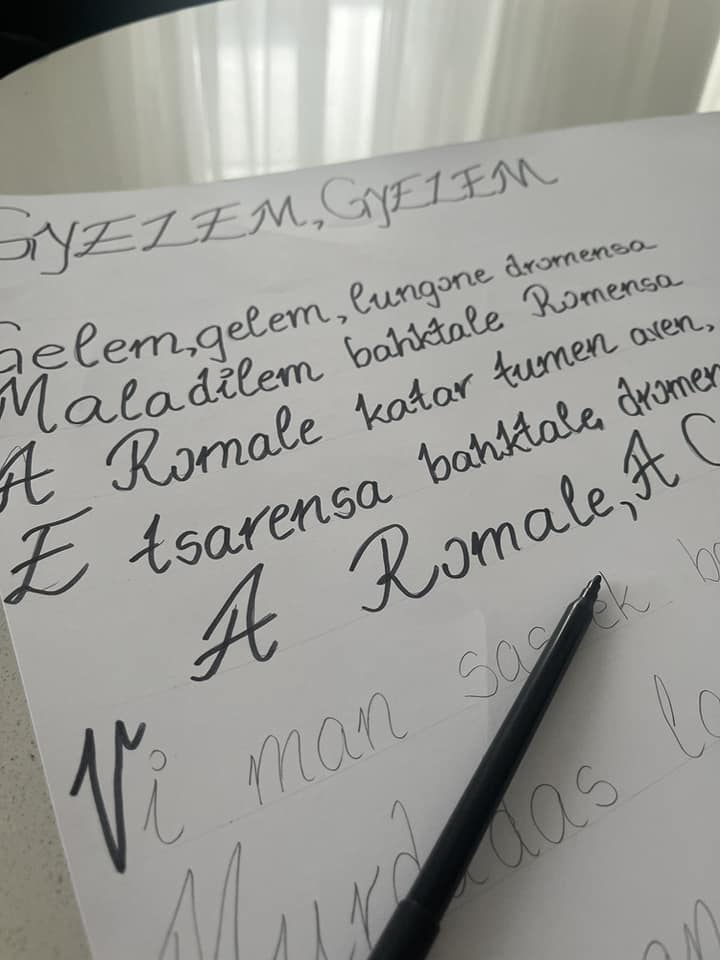 GYELEM, GYELEM
Gelem, gelem, lungone dromensa
Maladilem bahktale Romensa
A Romale katar tumen aven,
E tsarensa bahktale dromen
A Romale, A
Vi man
das